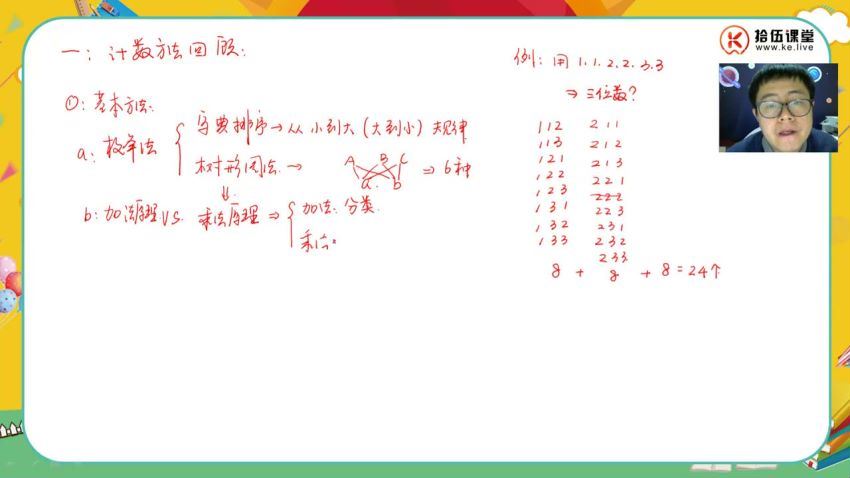 一：计数方法回顾：
①：基本方法：
a：枚举法 { 字典排序→从小到大（大到小）规律
树形图法→ A B C a b ⇒ 6种
b：加法原理 VS. 乘法原理 ⇒ { 加法：分类
乘法
例：用 1.1.2.2.3.3
⇒ 三位数？
112 211
113 212
121 213
122 221
123 222
131 223
132 231
133 232
233
8 + 8 + 8 = 24个
拾伍课堂
www.ke.live